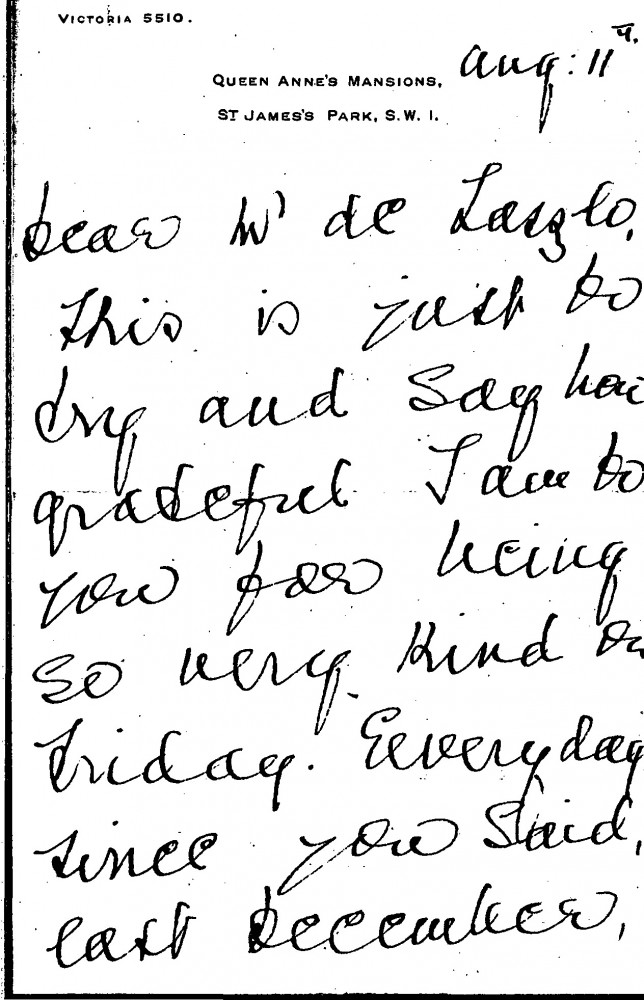 VICTORIA 5510.
Aug: 11th.
QUEEN ANNE'S MANSIONS,
ST JAMES'S PARK, S.W. 1.
Dear Mr de Laszlo,
This is just to
try and say how
grateful I am to
you for being
so very kind on
Friday. Eeveryday
since you said,
last December,